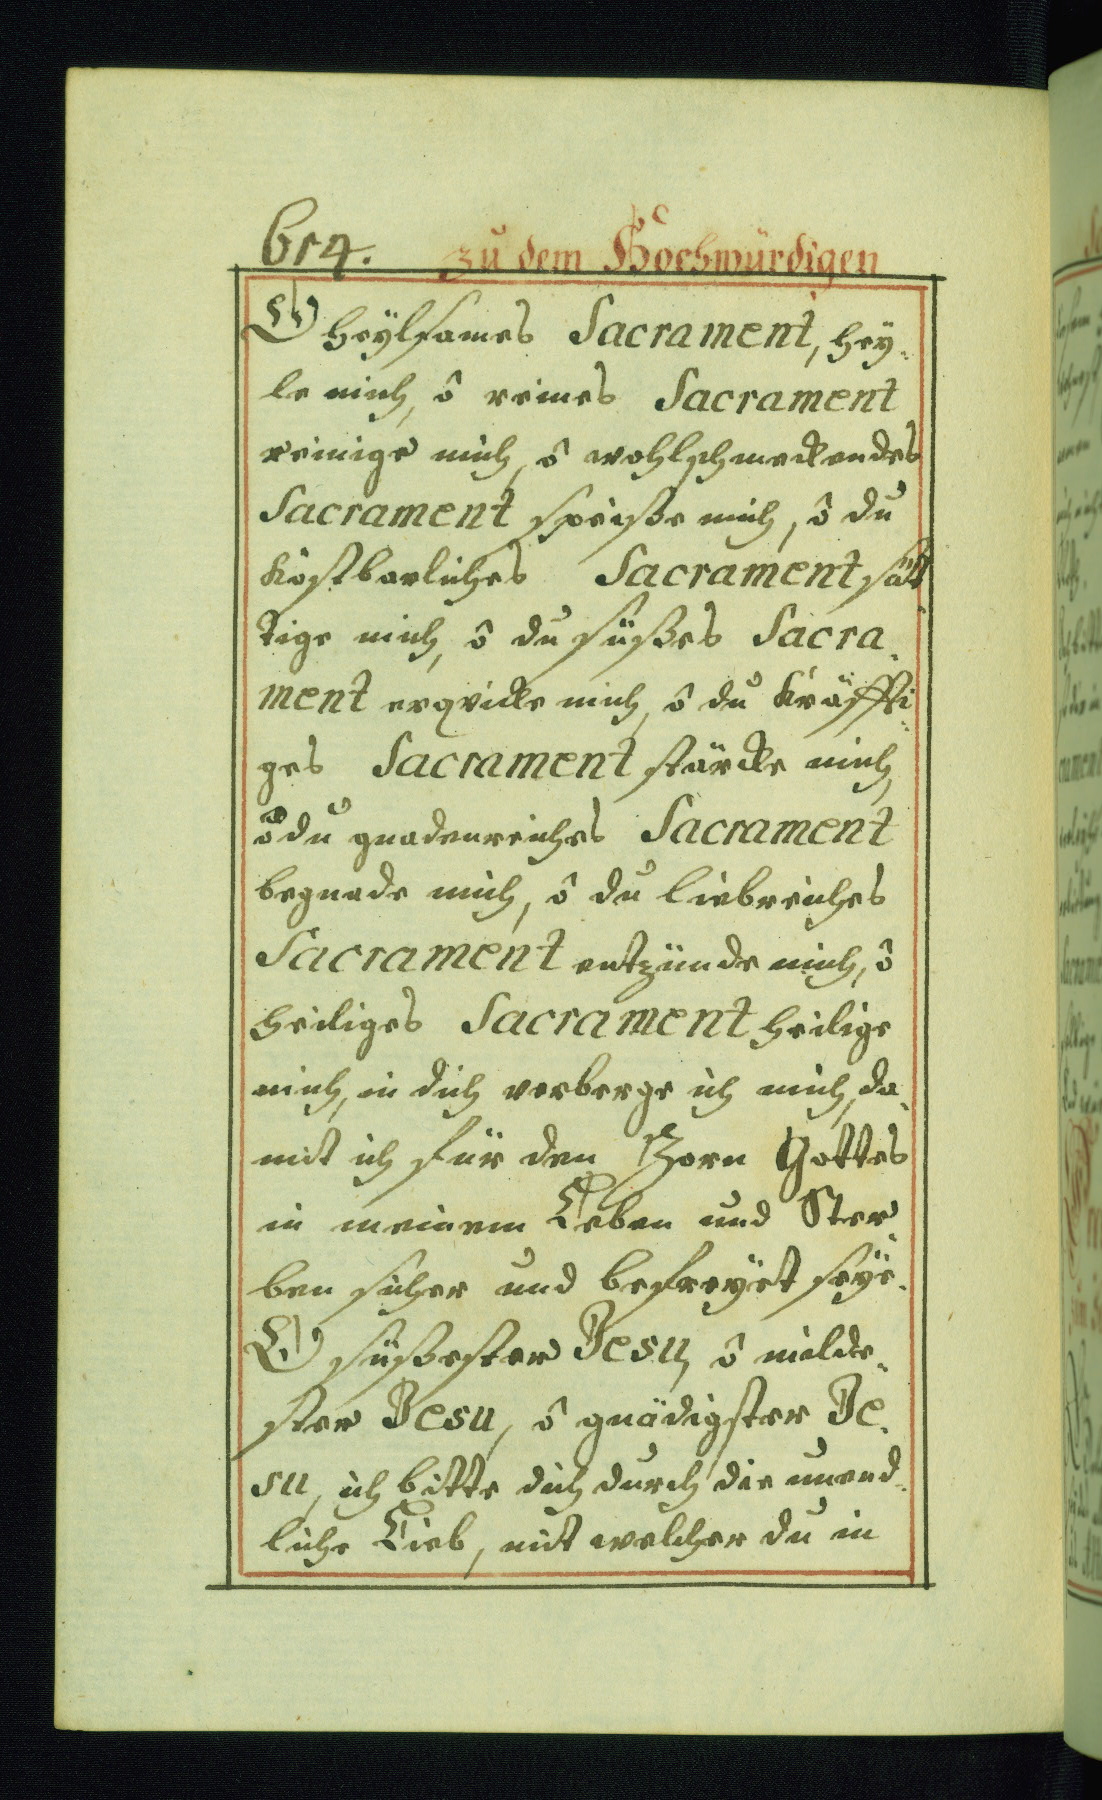 614. zu dem Hochwürdigen
O heÿlsames Sacrament, heÿ-
le mich, ô reines Sacrament
reinige mich, ô wohlschmeckendes
Sacrament speisse mich, ô du
kostbarliches Sacrament sätt-
tige mich, ô du süsses Sacra-
ment erqvicke mich, ô du kräffti-
ges Sacrament stärcke mich,
ô du gnadenreiches Sacrament
begnade mich, ô du liebreiches
Sacrament entzünde mich, ô
heiliges Sacrament heilige
mich, in dich verberge ich mich, da-
mit ich für den Zorn Gottes
in meinem Leben und Ster-
ben sicher und befreÿet seÿe.
O süssester Jesu, ô milde-
ster Jesu, ô gnädigster Je-
su, ich bitte dich durch die unend-
liche Lieb, mit welcher du in